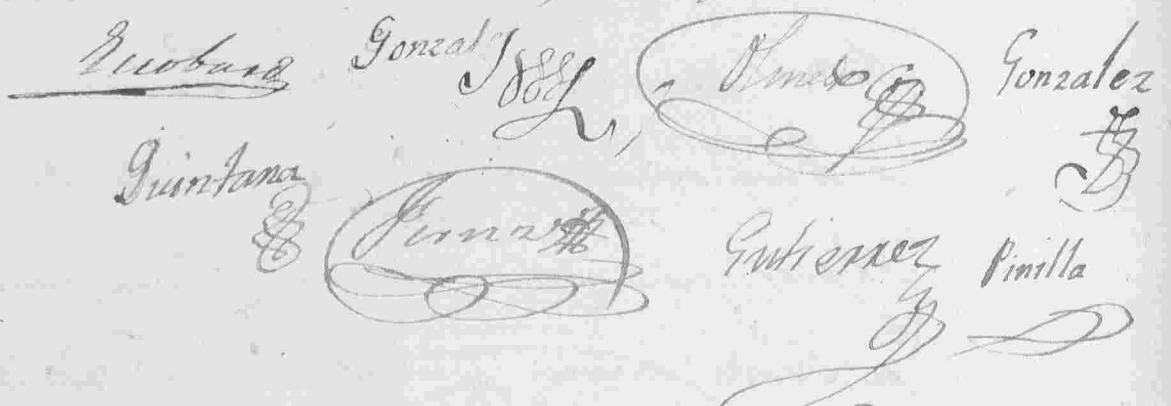 Escobar Gonzalz Olmedo Gonzalez
Quintana Gutierrez Pinilla